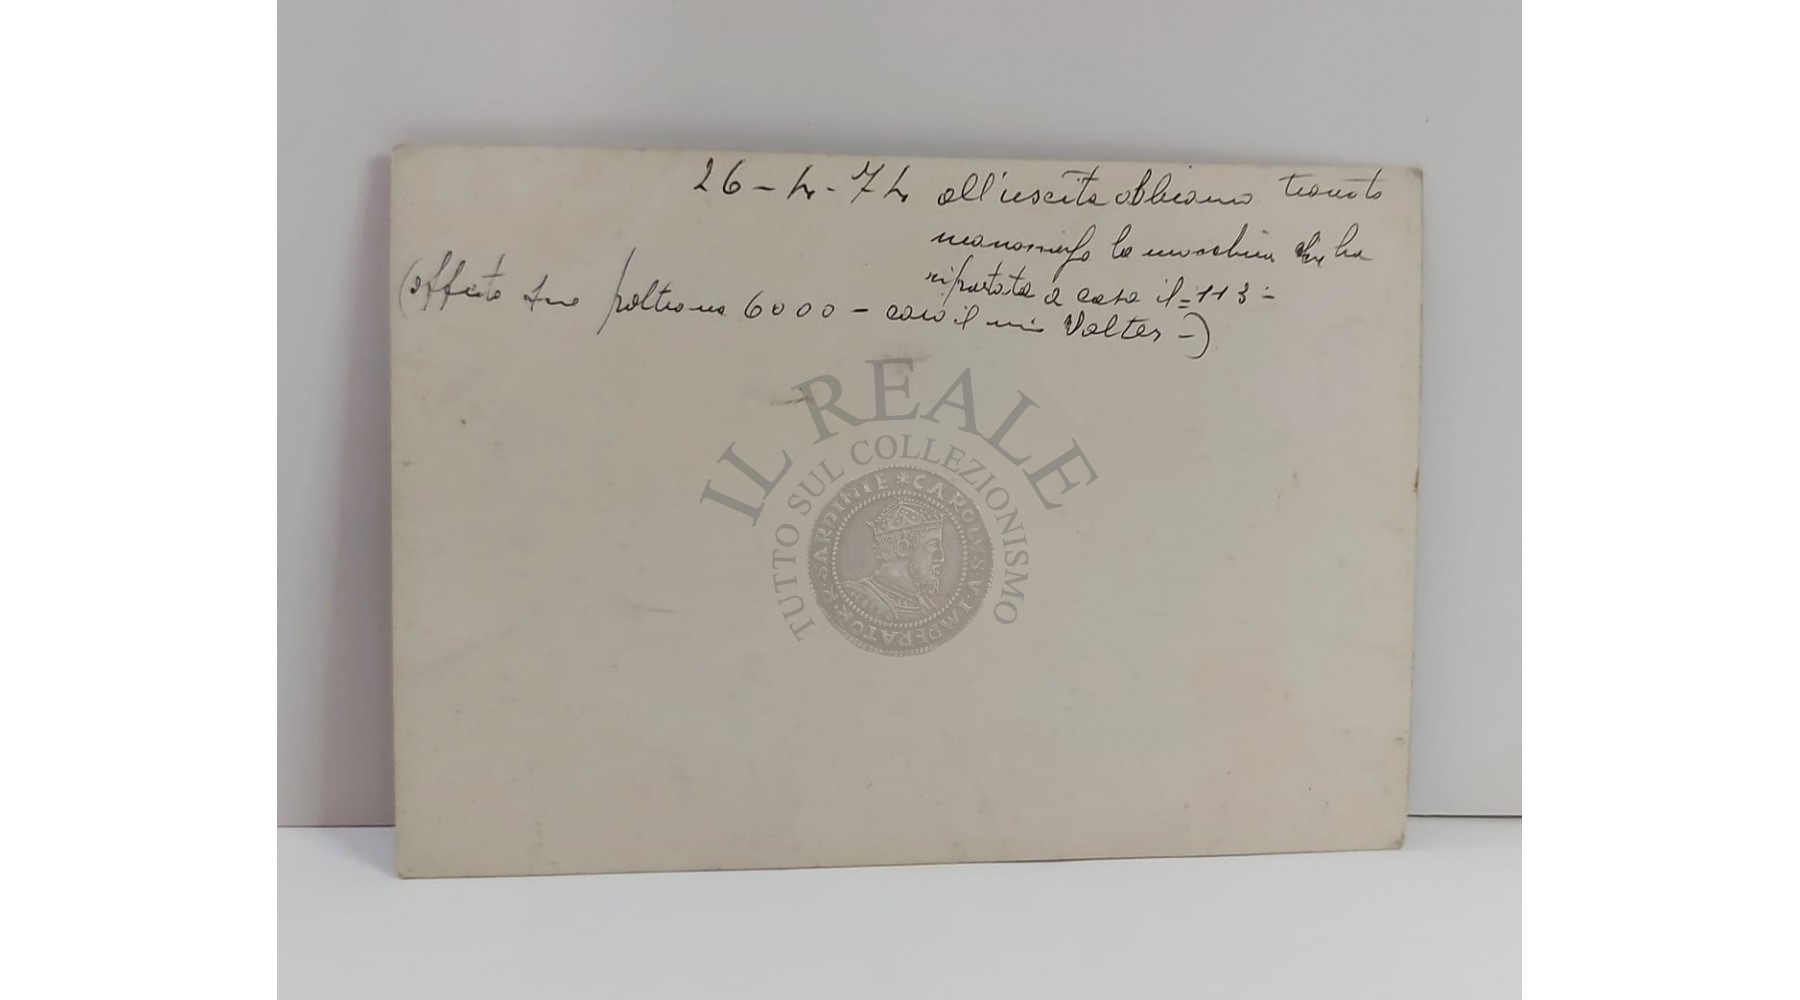 26-4-74 all'uscita abbiamo trovato
manomessa la macchina ha
riportata a casa il = 113 -
(offerto una poltrona 6000 - caro il mio Valter -)
IL REALE
TUTTO SUL COLLEZIONISMO
CAROLVS.V.IMPERATOR.R.SARDINIE